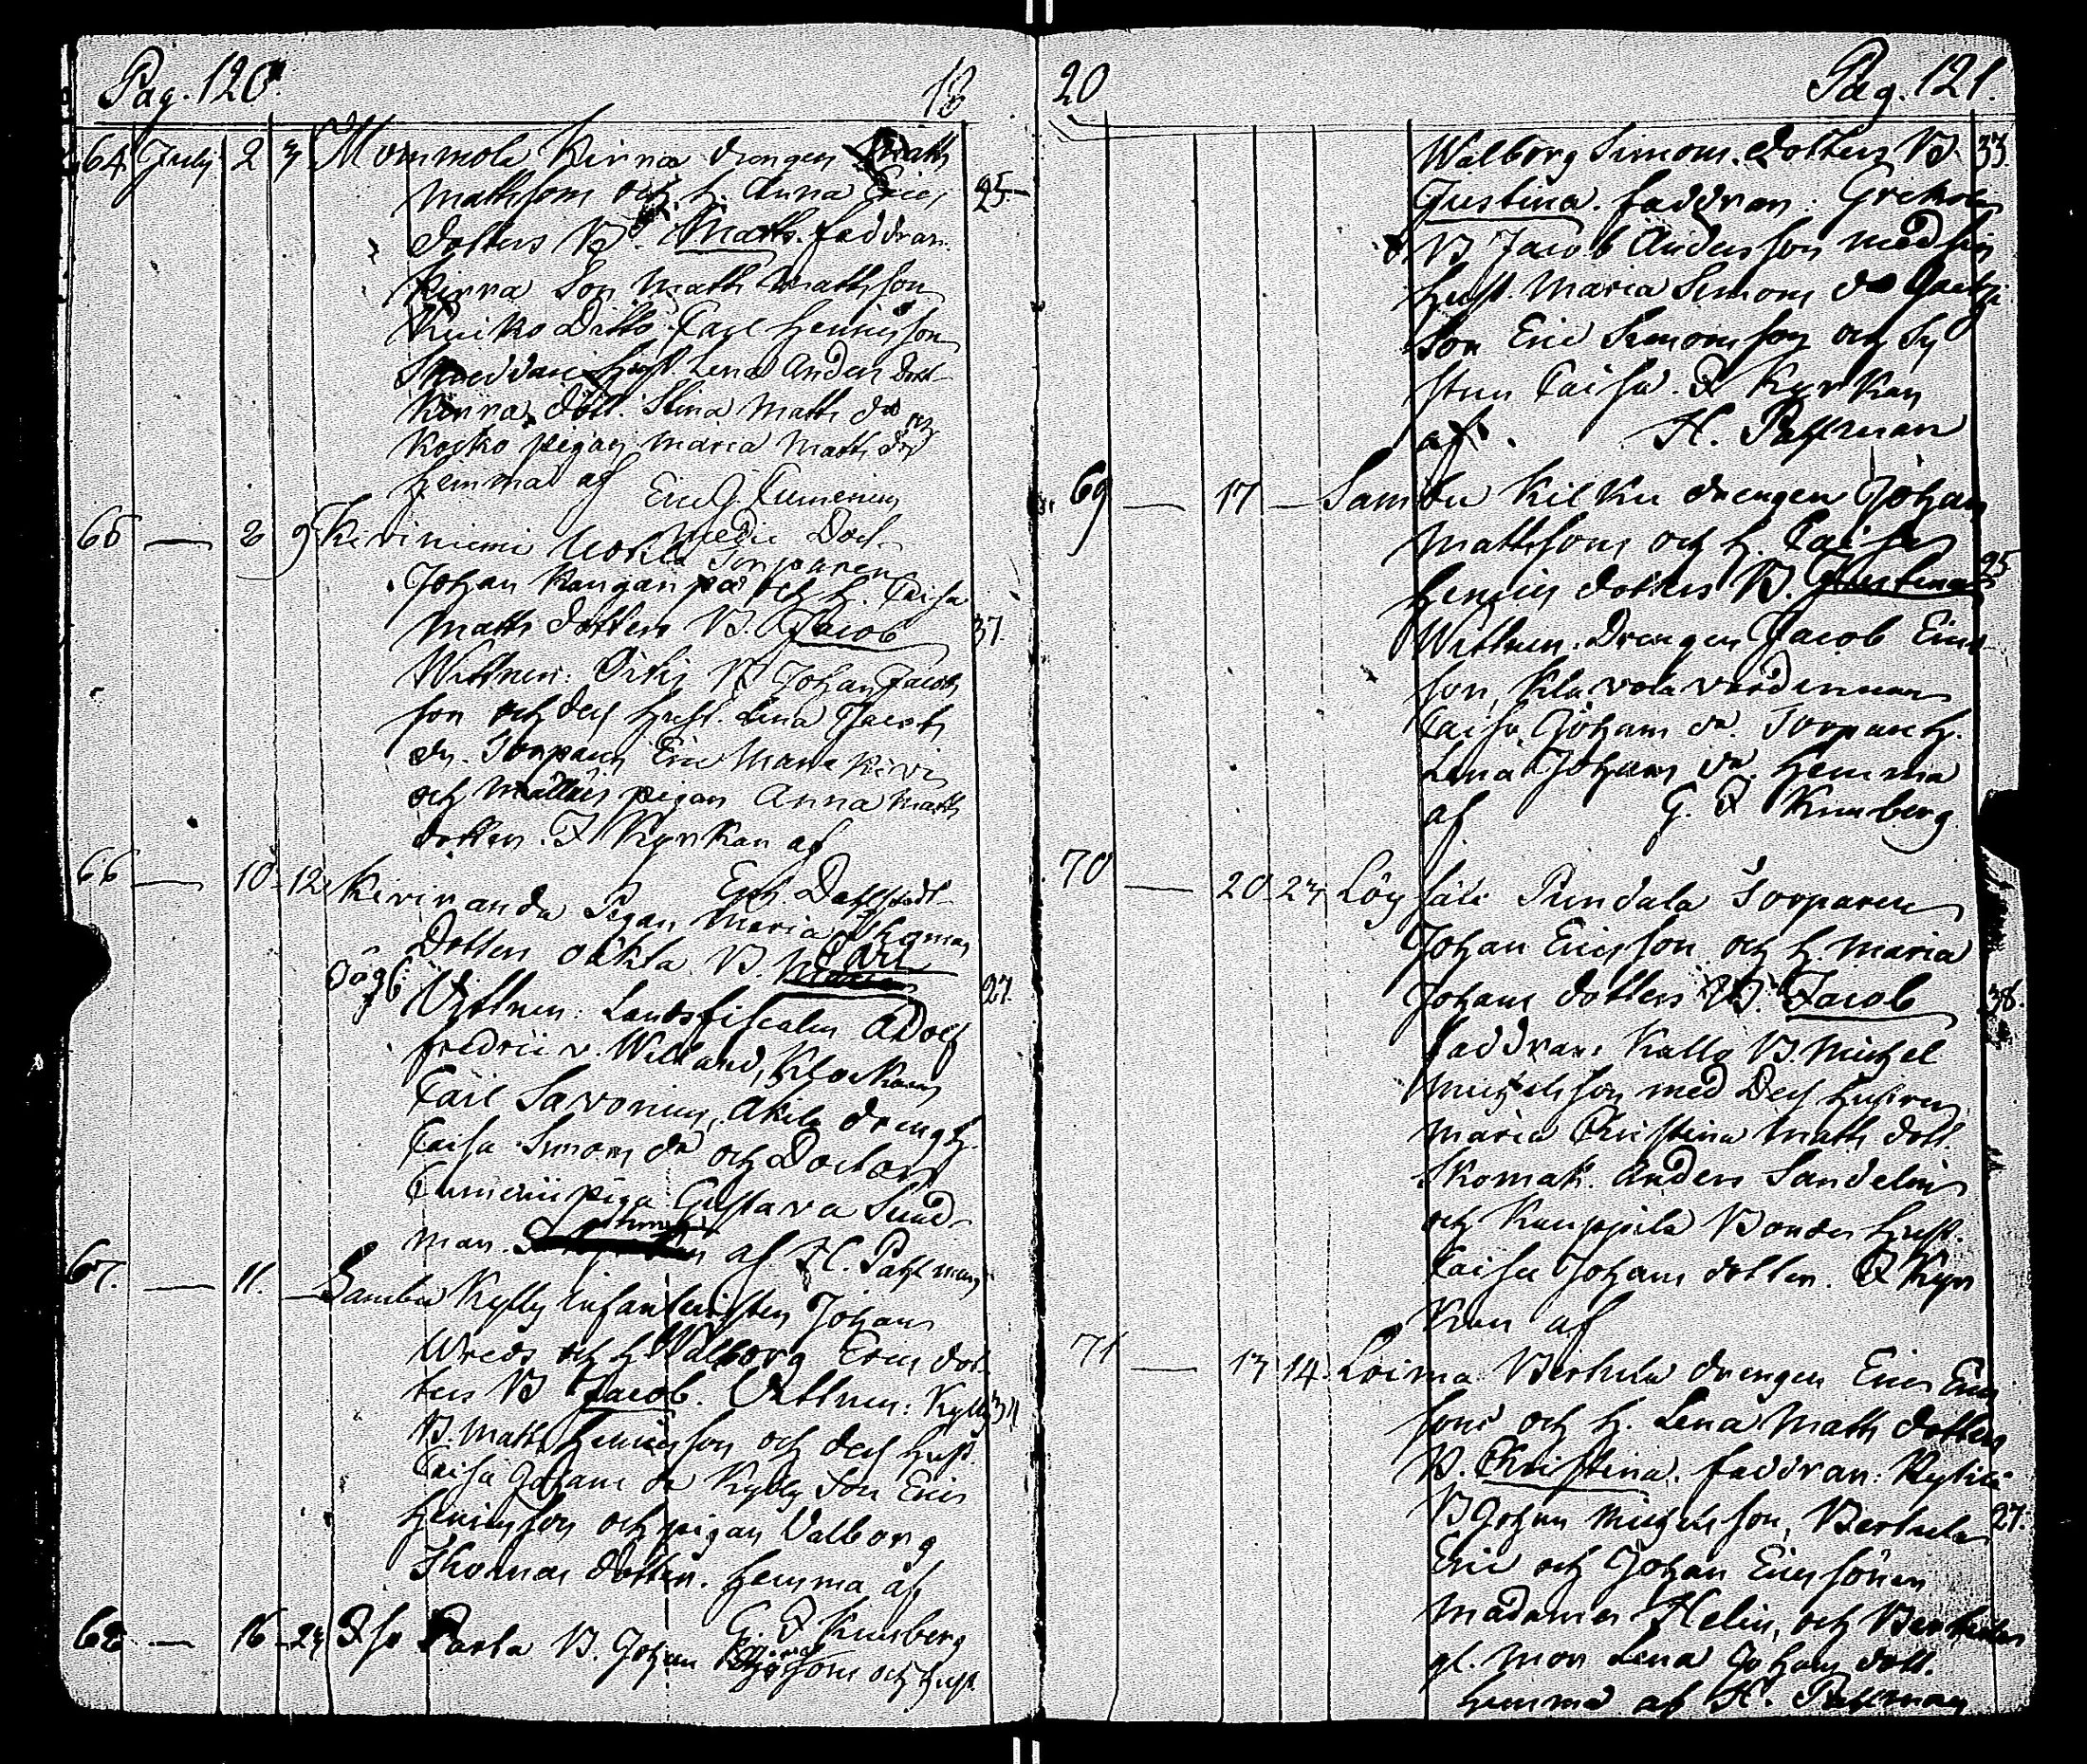 Pag. 120. 18
64 July 2 3 Mommola Kirra drengen Matts
Mattssons och h. Anna Erics 25
dotters B. Matts. faddran.
Kirra Son Matts Mattsson
Ditto Carl Henricsson
Hust. Lena Anders dott.
Kirra dott. Stina Matts dr och
Kocko pigan Maria Matts dr
hemma af Eric J. Cumenius
Medic Doct.
65 — 2 9 Kiviniemi Torparen
Johan Kanganpää och h. Caisa
Matts dotters B. Jacob 37.
Wittnen: B Johan Jacobs
son och des hust. Lena Jacobs
dr. Torparen Eric
och pigan Anna Matts
dotter. I Kyrkan af
Dahlstedt
66 — 10 12 Keviranda Pigan Maria Thomas
Dotters oäkta B. Carl
Wittnen: Landsfiscalen Adolf 27.
Fredric v. Willand, Klockaren
Carl Savonius, Akila dreng h.
Caisa Simons dr och Doctor
Cumenii piga Gustava Sund-
man. af H. Pahlman
67. — 11. — Sambu Kylly Infanteristen Johan
Wreds och h. Walborg Erics dot-
ters B Jacob. Wittnen: Kylly 34
B. Matts Henricsson och des hust.
Caisa Johans dr Kylly Son Eric
Henricsson och pigan Valborg
Thomas dotter. hemma af
G. I Kumberg
68 — 16 – 23 Iso Parta B. Johan och hust.
20 Pag. 121.
Walborg Simons dotters B. 33.
Justina. faddran:
B Jacob Andersson med sin
hust. Maria Simons dr
Son Eric Simonsson och Sy
stren Caisa. I Kyrkan
af. H. Pahlman
69 — 17 — Sambu Kilkku drengen Johan
Mattssons och h. Caisa
Henrics dotters B. Justina 25
Wittnen: Drengen Jacob Erics
son, Kilavola värdinnan
Caisa Johans dr. Torpare h.
Lena Johans dr. hemma
af G. I Kumberg
70 — 20. 23 Löysäli Pundala Torparen
Johan Ericsson och h. Maria
Johans dotters B. Jacob 38.
Faddran: Kallo B. Michel
Michelsson med Des Hustru
Maria Christina Matts dott.
Skomak. Anders Sandelin
och Kauppila Bondes hust.
Caisa Johans dotter. I Kyr
kan af
71 — 13 14. Loima Bertula drengen Erics Erics
sons och h. Lena Matts dotters
B. Christina. faddran:
B Johan Michelsson, Bertula 27.
Eric och Johan Ericssöner
Madamen Helin, och Bertula
gl. Mor Lena Johans dott.
hemma af H. Pahlman